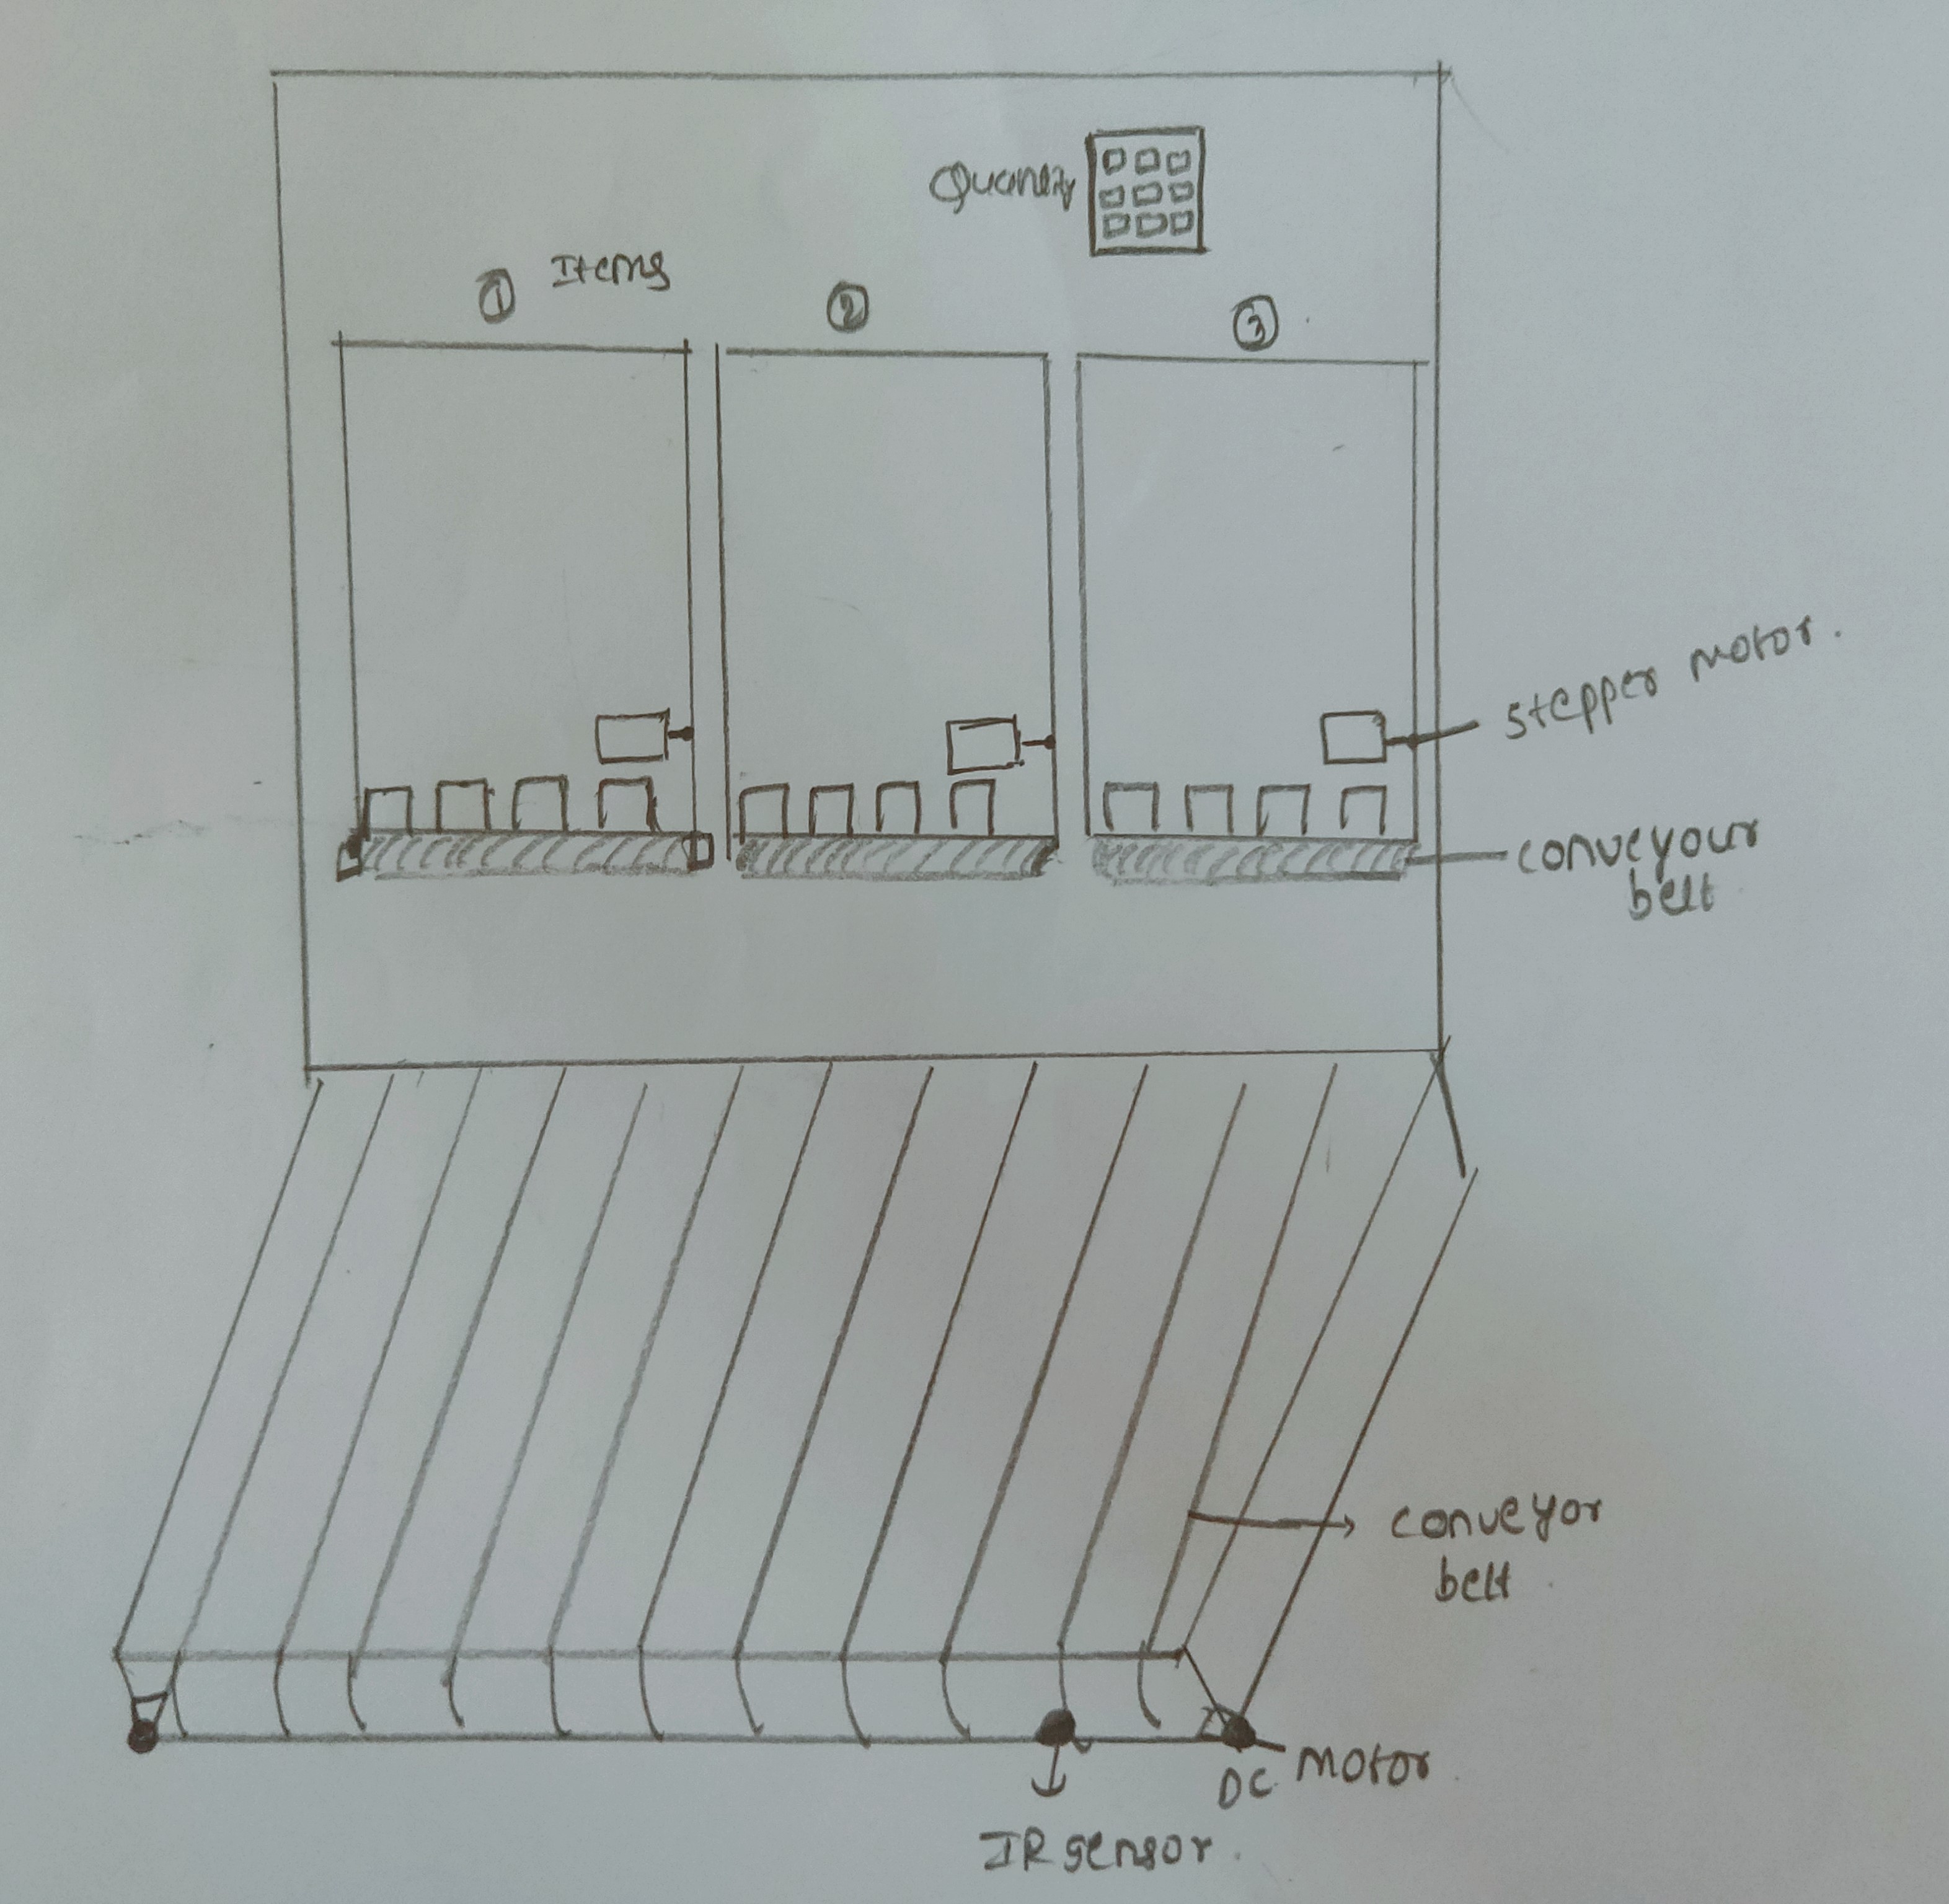 Quantity
① Items
②
③
stepper motor.
conveyour
belt
conveyor
belt
DC Motor
IR sensor.